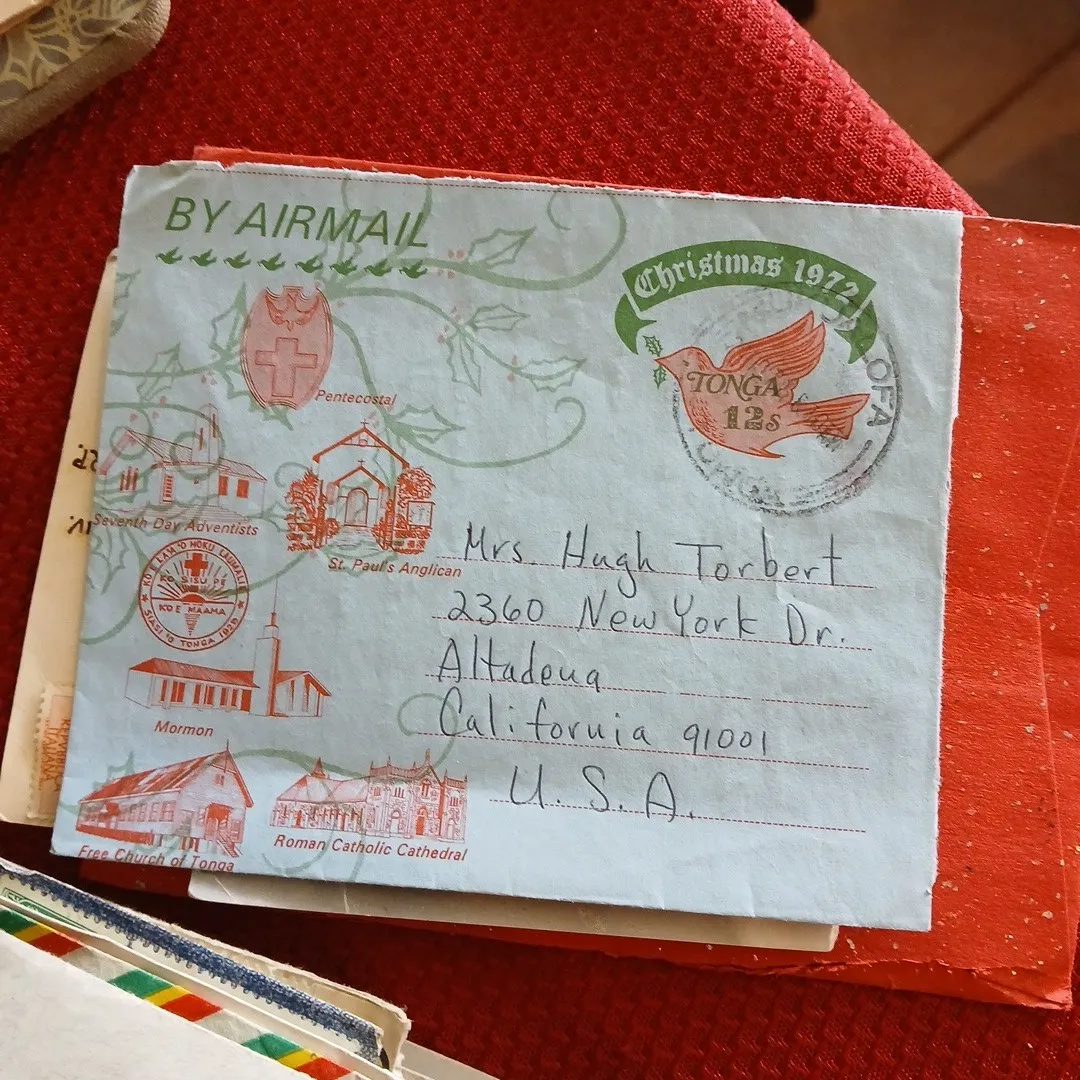 BY AIRMAIL
Christmas 1972
TONGA
12s
OFA
Pentecostal
Seventh Day Adventists
St. Paul's Anglican
KO E LA'Ā 'O HOKU LAUMALI
KO SISU PE
KO E MAAMA
SIASI 'O TONGA 1928
Mormon
Free Church of Tonga
Roman Catholic Cathedral
Mrs. Hugh Torbert
2360 New York Dr.
Altadena
California 91001
U. S. A.